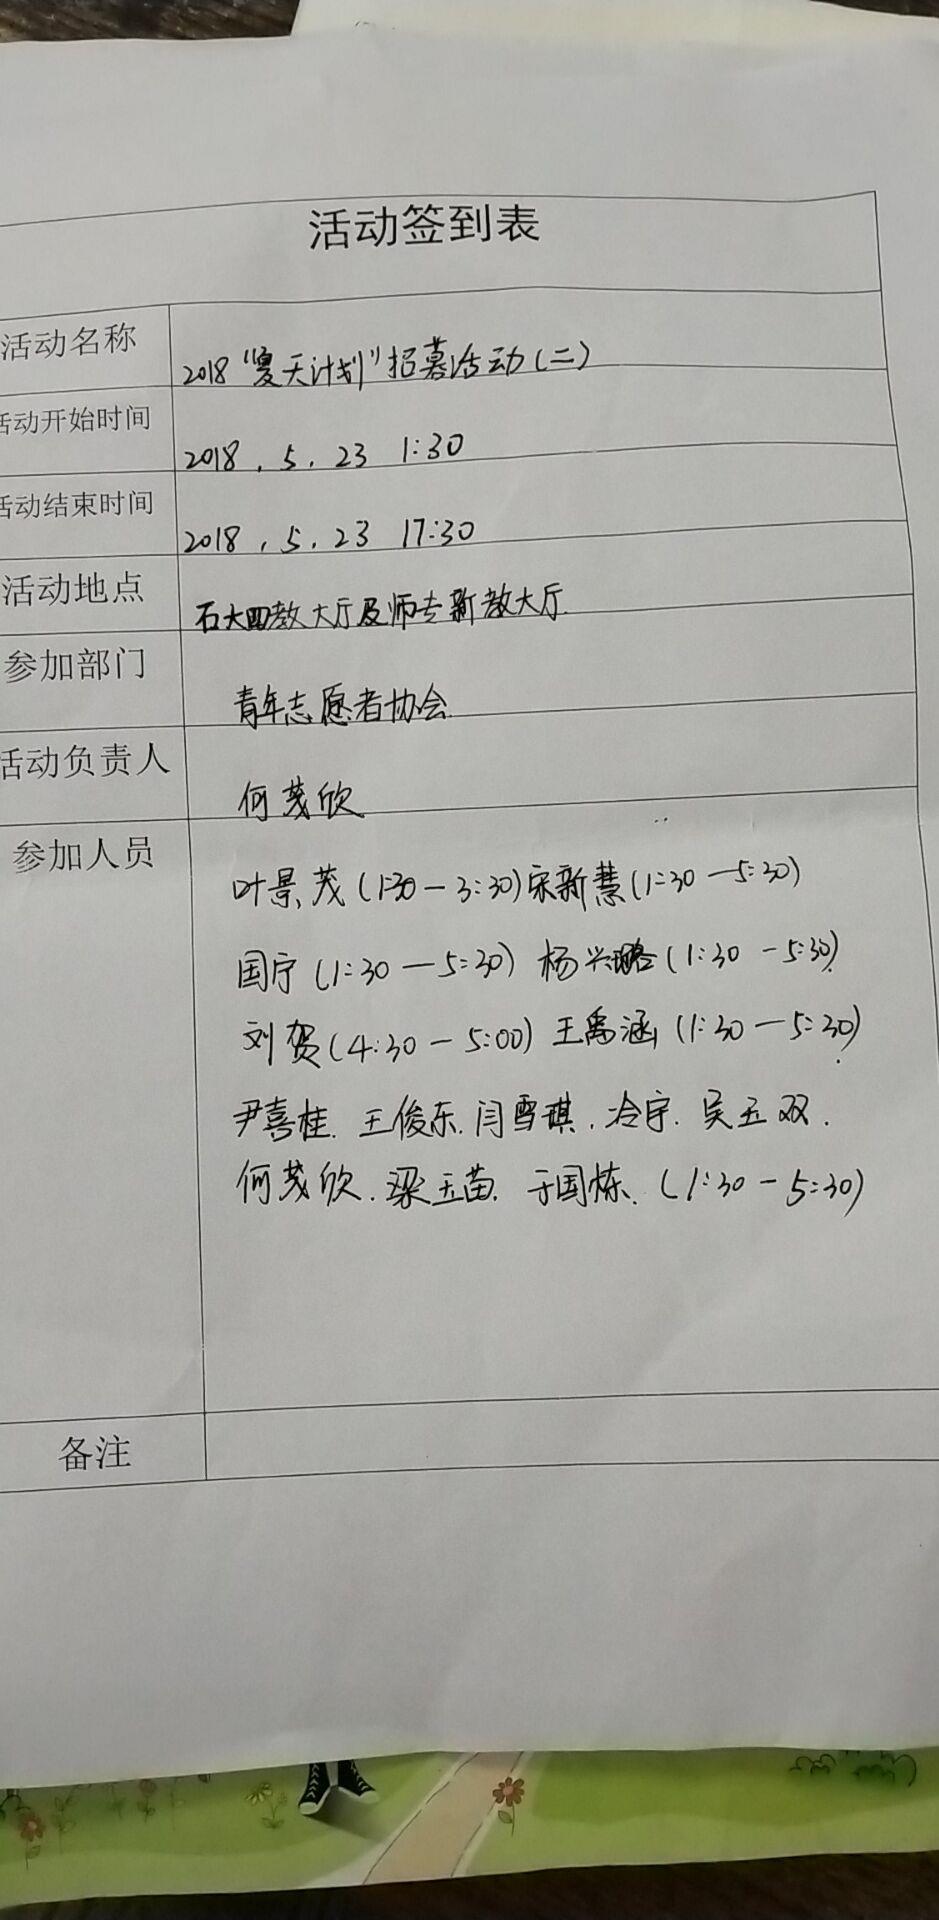 活动签到表
活动名称 2018“夏天计划”招募活动(二)
活动开始时间 2018.5.23 1:30
活动结束时间 2018.5.23 17:30
活动地点 石大四教大厅及师专新教大厅.
参加部门 青年志愿者协会.
活动负责人 何茂欣
参加人员 叶景茂(1:30-3:30)宋新慧(1:30-5:30)
国宁(1:30-5:30) 杨兴璐(1:30-5:30)
刘贺(4:30-5:00) 王禹涵(1:30-5:30)
尹喜桂.王俊东.闫雪琪.冷宇.吴玉双.
何茂欣.梁玉苗.于国栋.(1:30-5:30)
备注